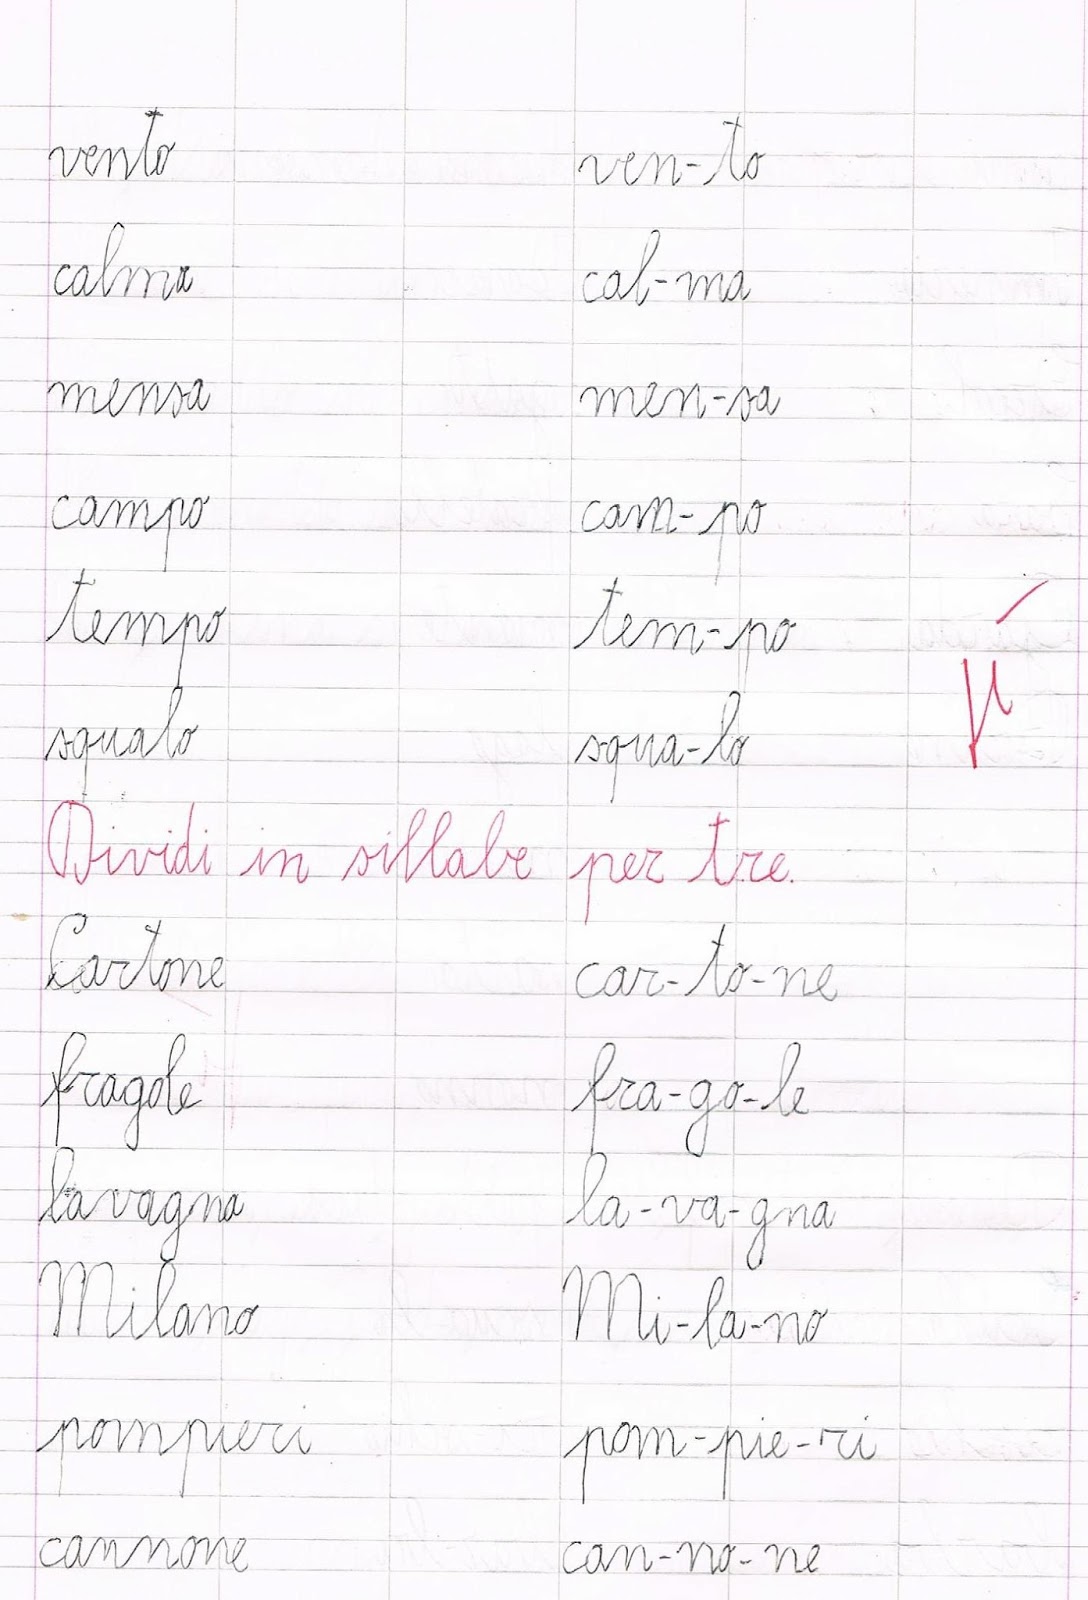 vento ven-to
calma cal-ma
mensa men-sa
campo cam-po
tempo tem-po
squalo squa-lo
Dividi in sillabe per tre.
Cartone car-to-ne
fragole fra-go-le
lavagna la-va-gna
Milano Mi-la-no
pompieri pom-pie-ri
cannone can-no-ne